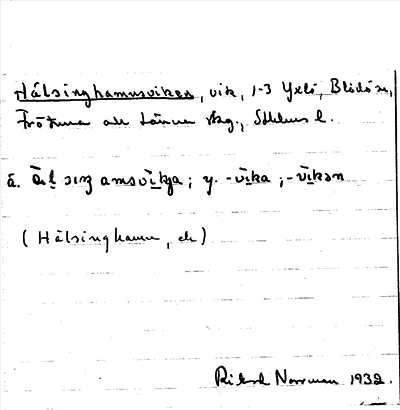 Hälsinghamnsviken, vik, 1-3 Yxlö, Blidö sn,
Frötuna och Länna skg., Sthlms l.
ä. ä̀l̠siŋamsvik̠a; y. -vīka; -vīkən
(Hälsinghamn, ek)
Rikard Norrman 1932.